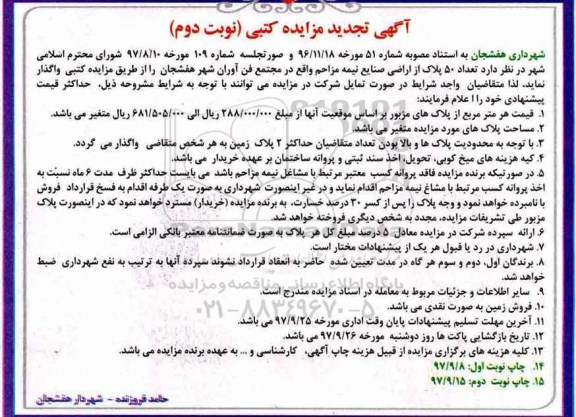 آگهی تجدید مزایده کتبی (نوبت دوم)
شهرداری هفشجان به استناد مصوبه شماره ۵۱ مورخه ۹۶/۱۱/۱۸ و صورتجلسه شماره ۱۰۹ مورخه ۹۷/۸/۱۰ شورای محترم اسلامی
شهر در نظر دارد تعداد ۵۰ پلاک از اراضی صنایع نیمه مزاحم واقع در مجتمع فن آوران شهر هفشجان را از طریق مزایده کتبی واگذار
نماید، لذا متقاضیان واجد شرایط در صورت تمایل شرکت در مزایده می توانند با توجه به شرایط مشروحه ذیل، حداکثر قیمت
پیشنهادی خود را اعلام فرمایند:
۱. قیمت هر متر مربع از پلاک های مزبور بر اساس موقعیت آنها از مبلغ ۲۸۸/۰۰۰/۰۰۰ ریال الی ۶۸۱/۵۰۵/۰۰۰ ریال متغیر می باشد.
۲. مساحت پلاک های مورد مزایده متغیر می باشد.
۳. با توجه به محدودیت پلاک ها و بالا بودن تعداد متقاضیان حداکثر ۲ پلاک زمین به هر شخص متقاضی واگذار می گردد.
۴. کیه هزینه های میخ کوبی، تحویل، اخذ سند ثبتی و پروانه ساختمان بر عهده خریدار می باشد.
۵. در صورتیکه برنده مزایده فاقد پروانه کسب معتبر مرتبط با مشاغل نیمه مزاحم باشد می بایست حداکثر ظرف مدت ۶ ماه نسبت به
اخذ پروانه کسب مرتبط با مشاغ نیمه مزاحم اقدام نماید و در غیر اینصورت شهرداری به صورت یک طرفه اقدام به فسخ قرارداد فروش
با نامبرده خواهد نمود و وجه پلاک را پس از کسر ۳۰ درصد خسارت، به برنده مزایده (خریدار) مسترد خواهد نمود که در اینصورت پلاک
مزبور طی تشریفات مزایده، مجدد به شخص دیگری فروخته خواهد شد.
۶. ارائه سپرده شرکت در مزایده معادل ۵ درصد مبلغ کل هر پلاک به صورت ضمانتنامه معتبر بانکی الزامی است.
۷. شهرداری در رد یا قبول هر یک از پیشنهادات مختار است.
۸. برندگان اول، دوم و سوم هر گاه در مدت تعیین شده حاضر به انعقاد قرارداد نشوند سپرده آنها به ترتیب به نفع شهرداری ضبط
خواهد شد.
۹. سایر اطلاعات و جزئیات مربوط به معامله در اسناد مزایده مندرج است.
۱۰. فروش زمین به صورت نقدی می باشد.
۱۱. آخرین مهلت تسلیم پیشنهادات پایان وقت اداری مورخه ۹۷/۹/۲۵ می باشد.
۱۲. تاریخ بازگشایی پاکت ها روز دوشنبه مورخه ۹۷/۹/۲۶ می باشد.
۱۳. کلیه هزینه های برگزاری مزایده از قبیل هزینه چاپ آگهی، کارشناسی و ... به عهده برنده مزایده می باشد.
۱۴. چاپ نوبت اول: ۹۷/۹/۸
۱۵. چاپ نوبت دوم: ۹۷/۹/۱۵
حامد فروزنده - شهردار هفشجان
۰۲۱-۸۸۳۴۹۶۷۰-۵